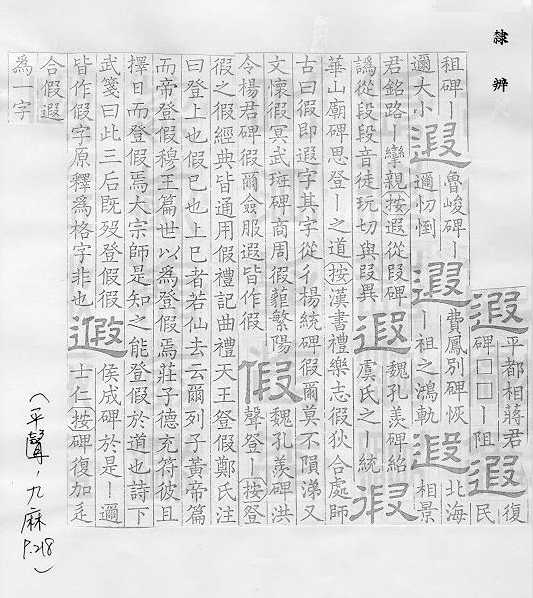 隸辨
遐
平都相蔣君
碑□□丨阻
遐
復
民
租碑丨
邇大小
遐
魯峻碑丨
邇忉
遐
費鳳別碑恢
丨祖之鴻軌
遐
北海
相景
君銘路丨攣親按遐從叚碑
譌從段段音徒玩切與叚異
遐
魏孔羨碑紹
虞氏之丨統
徦
華山廟碑思登丨之道按漢書禮樂志徦狄合處師
古曰徦即遐字其字從彳楊統碑徦爾莫不隕涕又
文懷徦冥武班碑商周徦藐繁陽
令楊君碑徦爾僉服遐皆作徦
假
魏孔羨碑洪
聲登丨按登
假之假經典皆通用假禮記曲禮天王登假鄭氏注
曰登上也假已也上已者若仙去云爾列子黃帝篇
而帝登假穆王篇世以為登假焉莊子德充符彼且
擇日而登假焉大宗師是知之能登假於道也詩下
武箋曰此三后既歿登假假
皆作假字原釋為格字非也
侯成碑於是丨邇
士仁按碑復加辵
合假遐
為一字
(平聲，九麻 P.218)